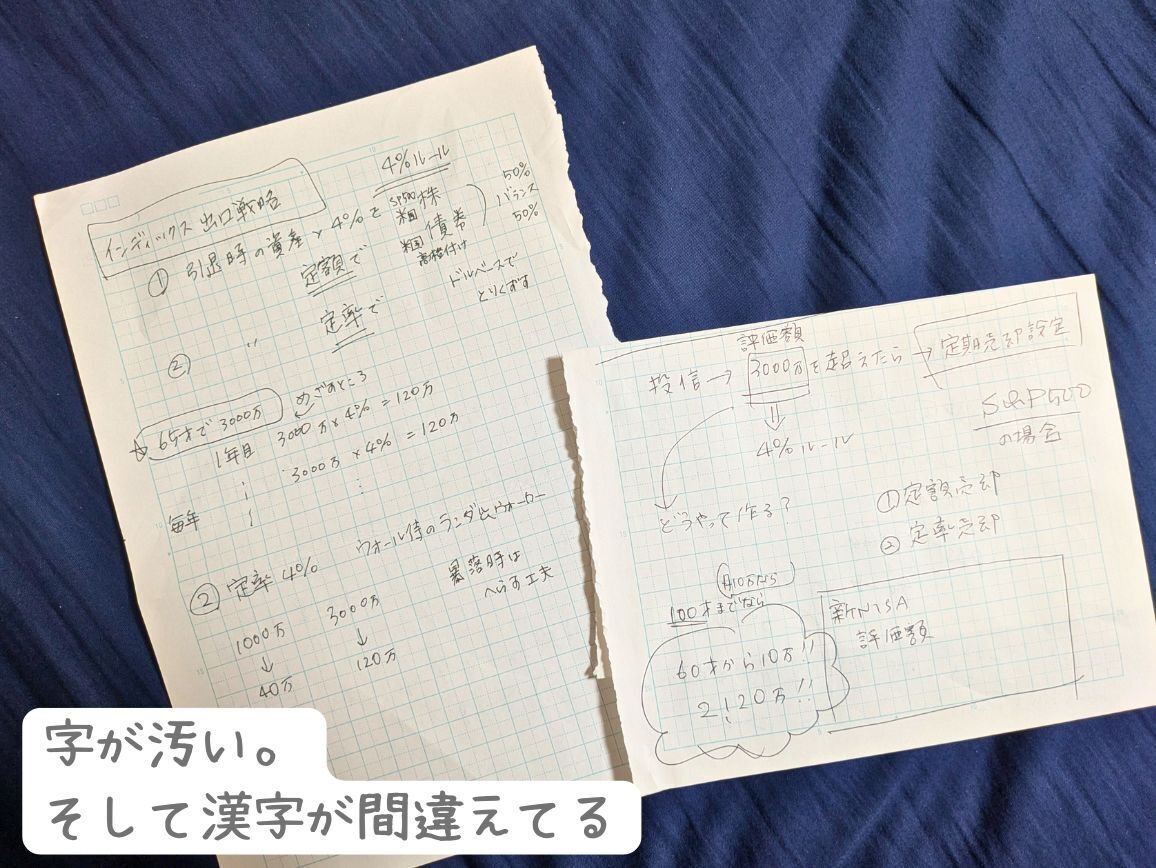 インディックス 出口戦略
4%ルール
① 引退時の資産×4%を
定額で
SP500
米国 株
米国 債券
高格付け
50%
バランス
50%
ドルベースで
とりくずす
② 〃
定率で
65才で3000万
めざすところ
1年目 3000万×4%=120万
3000万×4%=120万
毎年
② 定率4%
ウォール街のランダムウォーカー
1000万
↓
40万
3000万
↓
120万
暴落時は
へらす工夫
評価額
投信→3000万を超えたら→定期売却設定
⇓
4%ルール
S&P500
の場合
どうやって作る?
①定額売却
②定率売却
月10万なら
100才までなら
60才から10万!!
2,120万!!
新NISA
評価額
字が汚い。
そして漢字が間違えてる